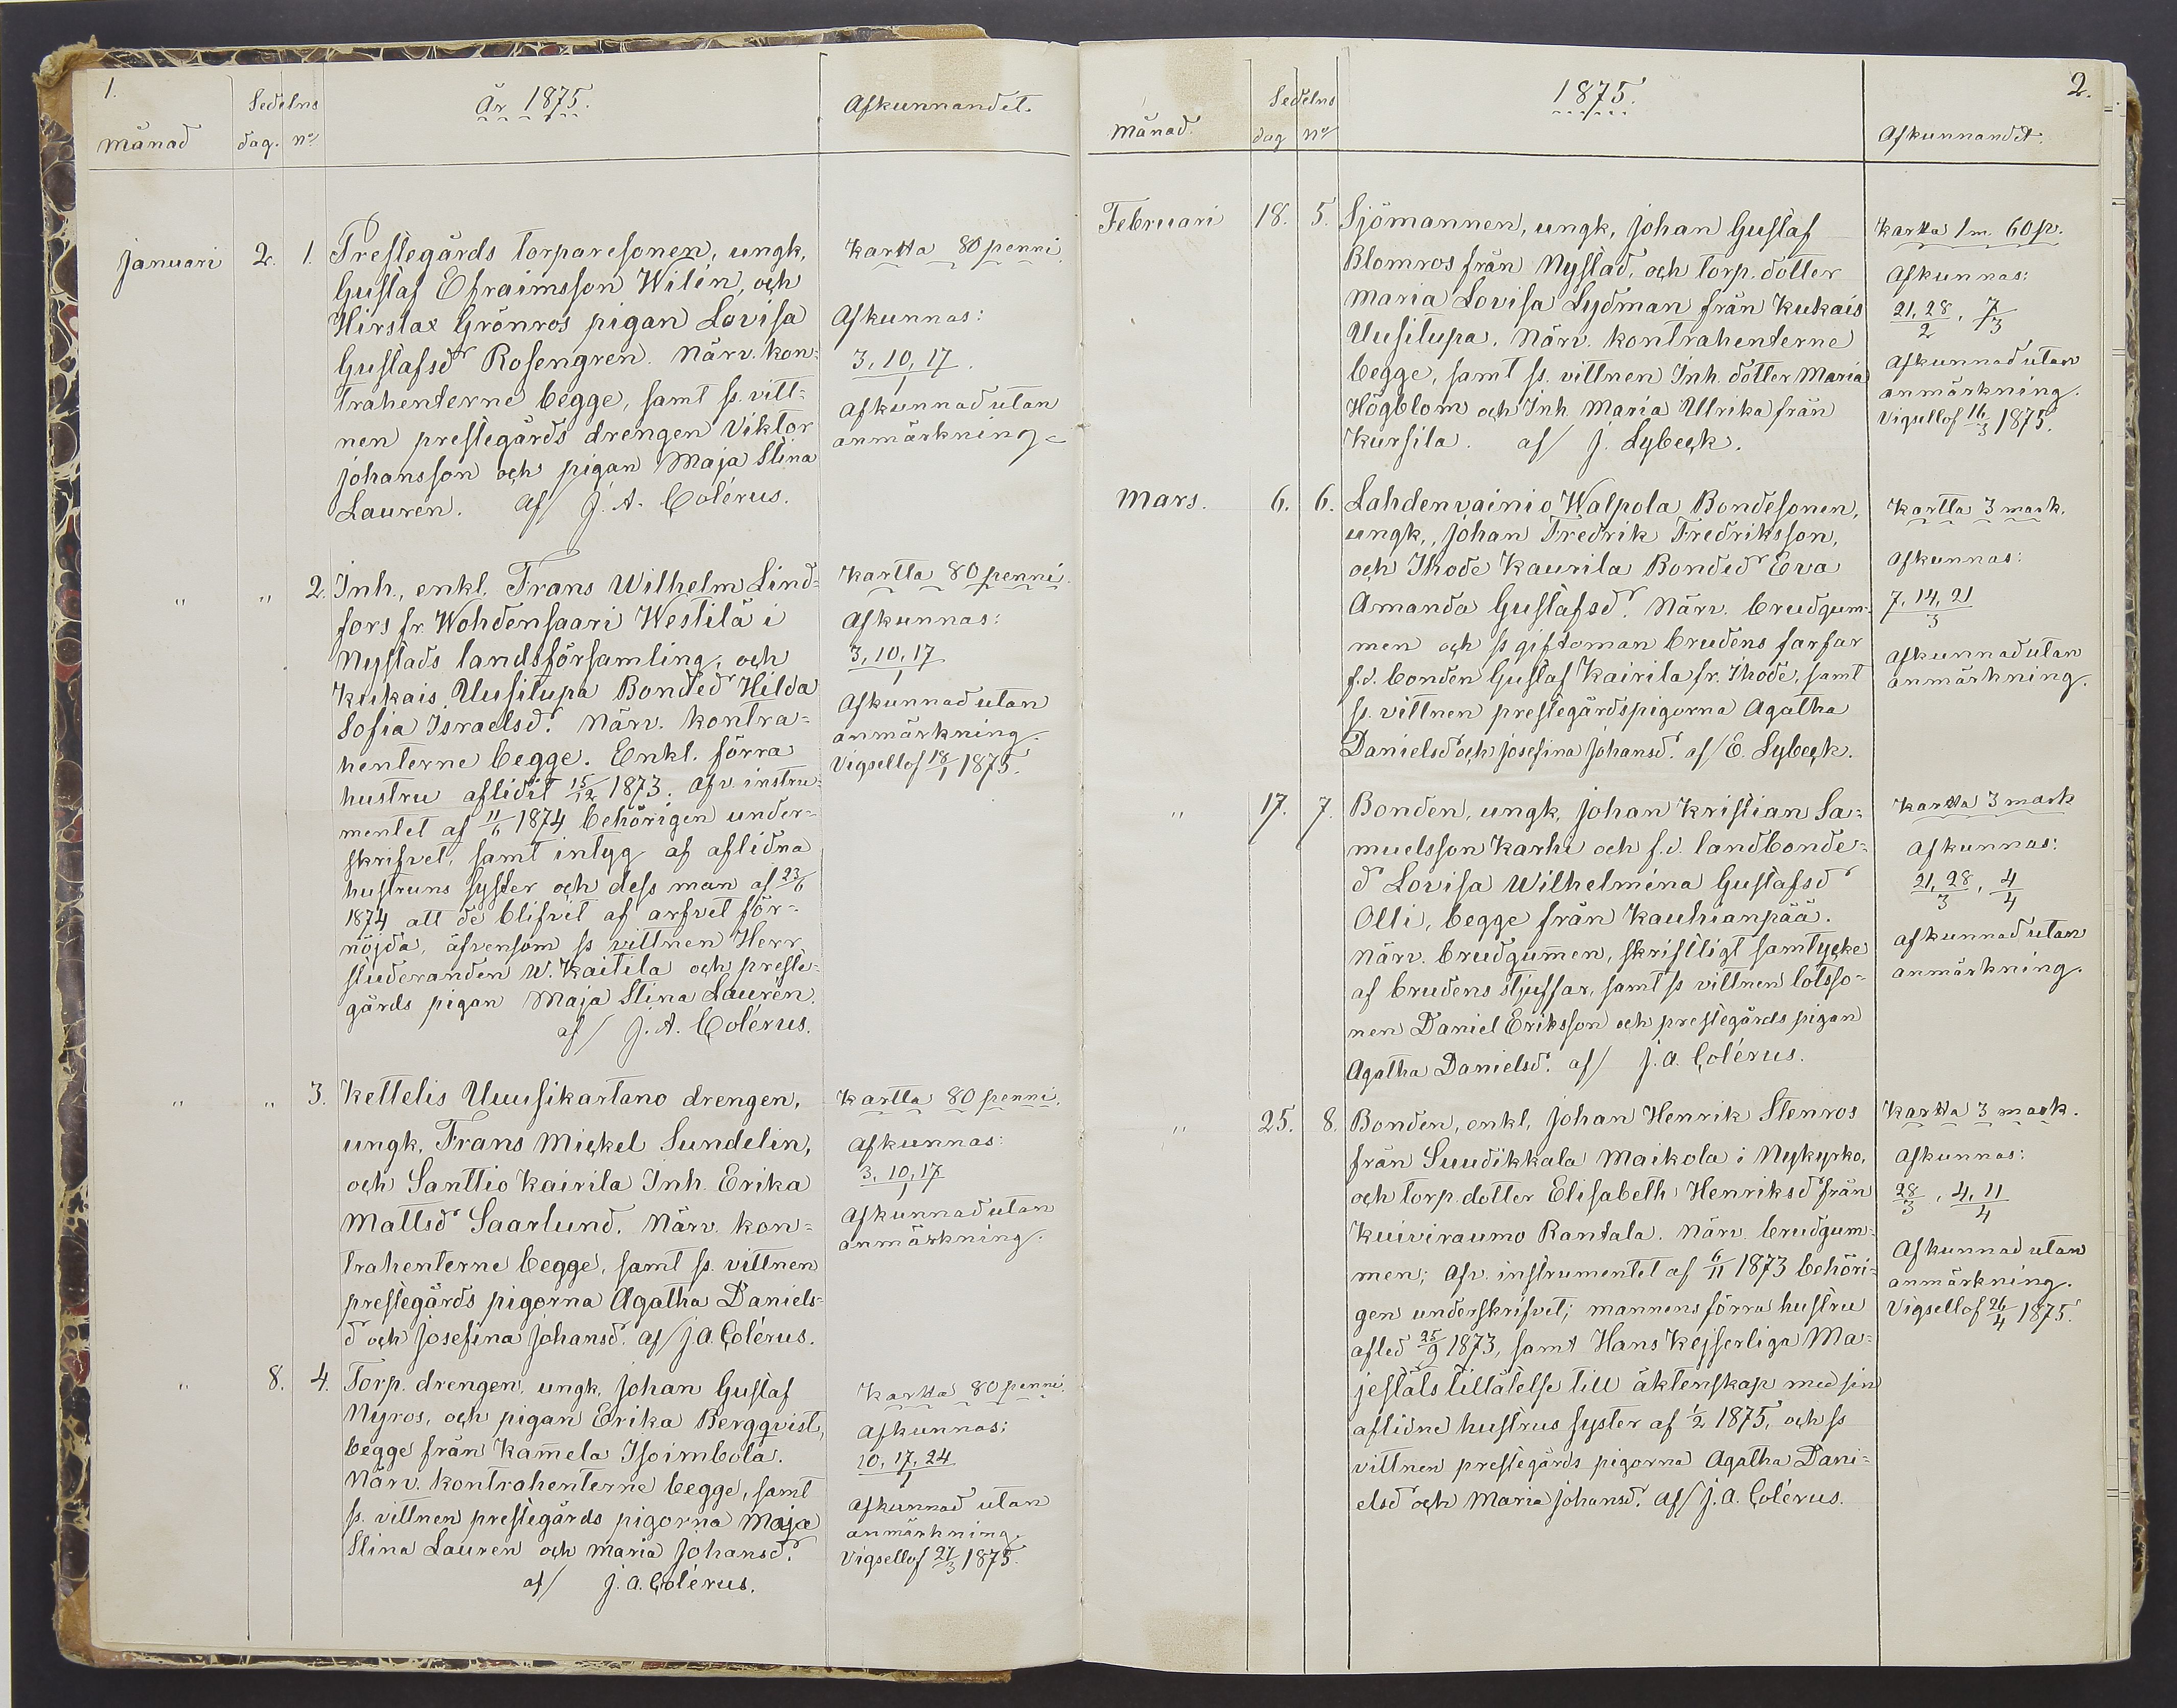 1.
Sedelns
År 1875.
Afkunnandet.
Månad dag. No
Januari 2. 1. Prestegårds torparesonen, ungk,
Gustaf Efraimsson Wilén, och
Hirslax Grönros pigan Lovisa
Gustafsdr Rosengren. Närv. kon=
trahenterne begge, samt ss. vitt=
nen prestegårds drengen Viktor
Johansson och pigan Maja Stina
Lauren. af/ J. A. Colérus.
Kartta 80 penni.
Afkunnas:
3, 10, 17/1.
Afkunnad utan
anmärkning.
" " 2. Inh., enkl. Frans Wilhelm Lind=
fors fr. Wohdensaari Westilä i
Nystads landsförsamling, och
Kukais Uusitupa Bonded Hilda
Sofia Israelsdr. Närv. kontra=
henterne begge. Enkl. förra
hustru aflidit 15/12 1873. Afv. instru=
mentet af 11/6 1874 behörigen under=
skrifvet, samt intyg af aflidna
hustruns syster och dess man af 23/6
1874 att de blifvit af arfvet för=
nöjda, äfvensom ss vittnen Herr
studeranden W. Kaitila och preste=
gårds pigan Maja Stina Lauren.
af/ J. A. Colérus.
Kartta 80 penni.
Afkunnas:
3, 10, 17/1
Afkunnad utan
anmärkning.
Vigsellof 18/1 1875.
" " 3. Kettelis Uuusikartano drengen,
ungk, Frans Mickel Sundelin,
och Santtio Kairila Inh. Erika
Mattsdr Saarlund. Närv. kon=
trahenterne begge, samt ss. vittnen
prestegårds pigorna Agatha Daniels=
d och Josefina Johansd. af/ J. A. Colérus.
Kartta 80 penni.
Afkunnas:
3, 10, 17/1
Afkunnad utan
anmärkning.
" 8. 4. Torp. drengen, ungk, Johan Gustaf
Nyros, och pigan Erika Bergqvist,
begge från Kam̄ela Isoimbola.
Närv. kontrahenterne begge, samt
ss. vittnen prestegårds pigorna Maja
Stina Lauren och Maria Johansdr.
af/ J. A. Colérus.
Kartta 80 penni.
Afkunnas:
10, 17, 24/1
Afkunnad utan
anmärkning.
Vigsellof 27/3 1875.
2.
Sedelns
1875.
Månad. dag No
Afkunnandet.
Februari 18. 5. Sjömannen, ungk, Johan Gustaf
Blomros från Nystad, och torp. dotter
Maria Lovisa Lydman från Kukais
Uusitupa. Närv. kontrahenterne
begge, samt ss. vittnen Inh. dotter Maria
Högblom och Inh. Maria Ulrika från
Kursila. af/ J. Lybeck.
Kartta 1 m. 60 p.
Afkunnas:
21, 28/2, 7/3
Afkunnad utan
anmärkning.
Vigsellof 16/3 1875.
Mars. 6. 6. Lahdenvainio Walpola Bondesonen,
ungk., Johan Fredrik Fredriksson,
och Ihode Kaurila Bondedr Eva
Amanda Gustafsdr. Närv. brudgum=
men och ss giftoman brudens farfar
f.d. bonden Gustaf Kairila fr. Ihode, samt
ss. vittnen prestegårdspigorna Agatha
Danielsd och Josefina Johansd. af/ E. Lybeck.
Kartta 3 mark.
Afkunnas:
7, 14, 21/3
Afkunnad utan
anmärkning.
" 17. 7. Bonden, ungk, Johan Kristian Sa=
muelsson Karhi och f.d. landbonde=
d Lovisa Wilhelmina Gustafsdr
Olli, begge från Kauhianpää.
Närv. brudgum̄en, skriftligt samtycke
af brudens stjuffar, samt ss vittnen lotsso=
nen Daniel Eriksson och prestegårds pigan
Agatha Danielsd. af/ J. A. Colérus.
Kartta 3 mark
Afkunnas:
21, 28/3, 4/4
Afkunnad utan
anmärkning.
" 25. 8. Bonden, enkl, Johan Henrik Stenros
från Suudikkala Maikola i Nykyrko,
och torp. dotter Elisabeth Henriksd från
Kuiviraumo Rantala. Närv. brudgum=
men; Afv. instrumentet af 6/11 1873 behöri=
gen underskrifvet; mannens förra hustru
afled 25/9 1873, samt Hans Kejserliga Ma=
jestäts tillåtelse till äktenskap med sin
aflidne hustrus syster af 1/2 1875, och ss
vittnen prestegårds pigorna Agatha Dani=
elsd och Maria Johansd. af/ J. A. Colérus.
Kartta 3 mark.
Afkunnas:
28/3, 4, 11/4
Afkunnad utan
anmärkning.
Vigsellof 26/4 1875.